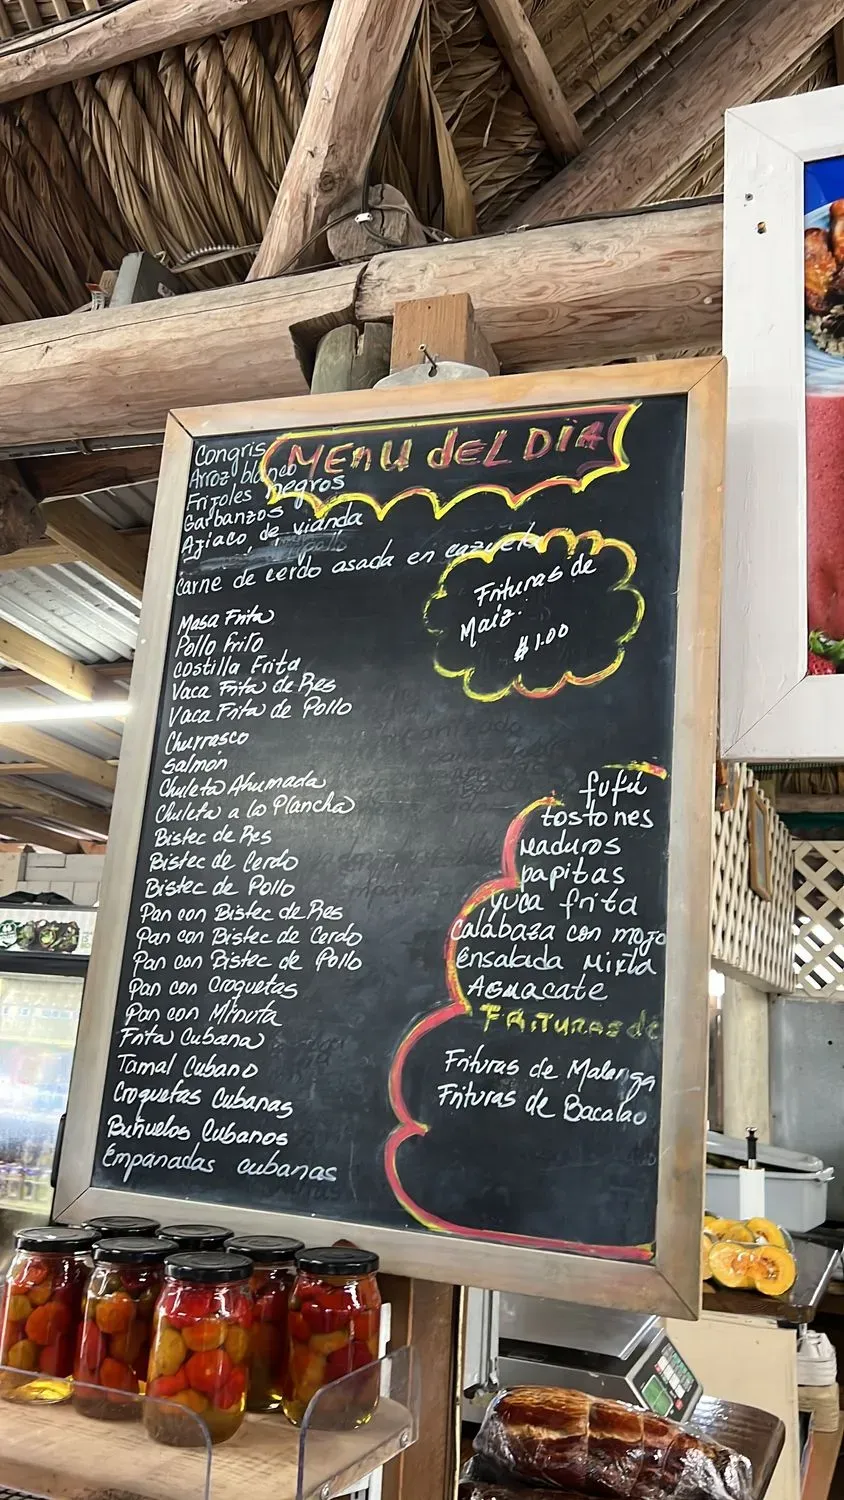 MENU dEL DIA
Congris
Arroz blanco
Frijoles negros
Garbanzos
Ajiaco de vianda
carne de cerdo asada en cazuela
Frituras de
Maiz.
$1.00
Masa Frita
Pollo Frito
Costilla Frita
Vaca Frita de Res
Vaca Frita de Pollo
Churrasco
Salmon
Chuleta Ahumada
Chuleta a la Plancha
Bistec de Res
Bistec de Cerdo
Bistec de Pollo
Pan con Bistec de Res
Pan con Bistec de Cerdo
Pan con Bistec de Pollo
Pan con Croquetas
Pan con Minuta
Frita Cubana
Tamal Cubano
Croquetas Cubanas
Buñuelos Cubanos
Empanadas cubanas
fufú
tostones
Maduros
papitas
yuca frita
calabaza con mojo
Ensalada Mixta
AGuacate
FRITURAS de
Frituras de Malanga
Frituras de Bacalao